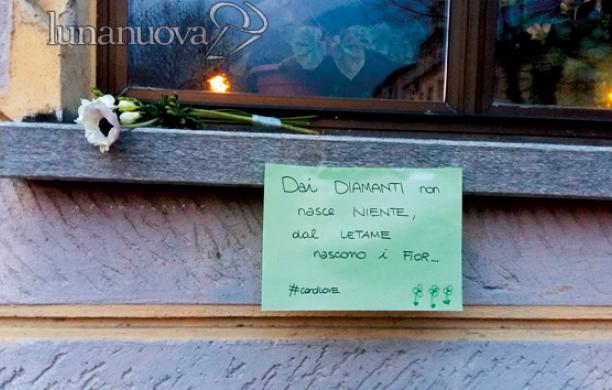 lunanuova
Dai DIAMANTI non
nasce NIENTE,
dal LETAME
nascono i FIOR...
#condLOVE